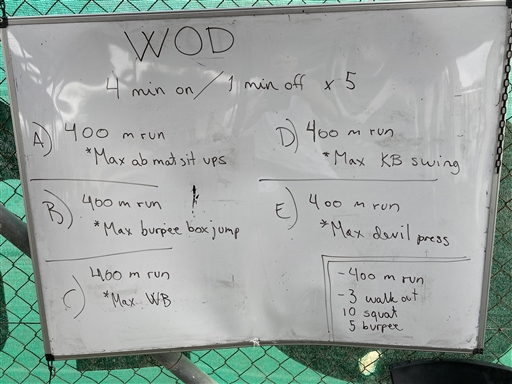 WOD
4 min on / 1 min off x 5
A) 400 m run
*Max abmat sit ups
B) 400 m run
*Max burpee box jump
C) 400 m run
*Max WB
D) 400 m run
*Max KB swing
E) 400 m run
*Max devil press
- 400 m run
- 3 walk out
10 squat
5 burpee